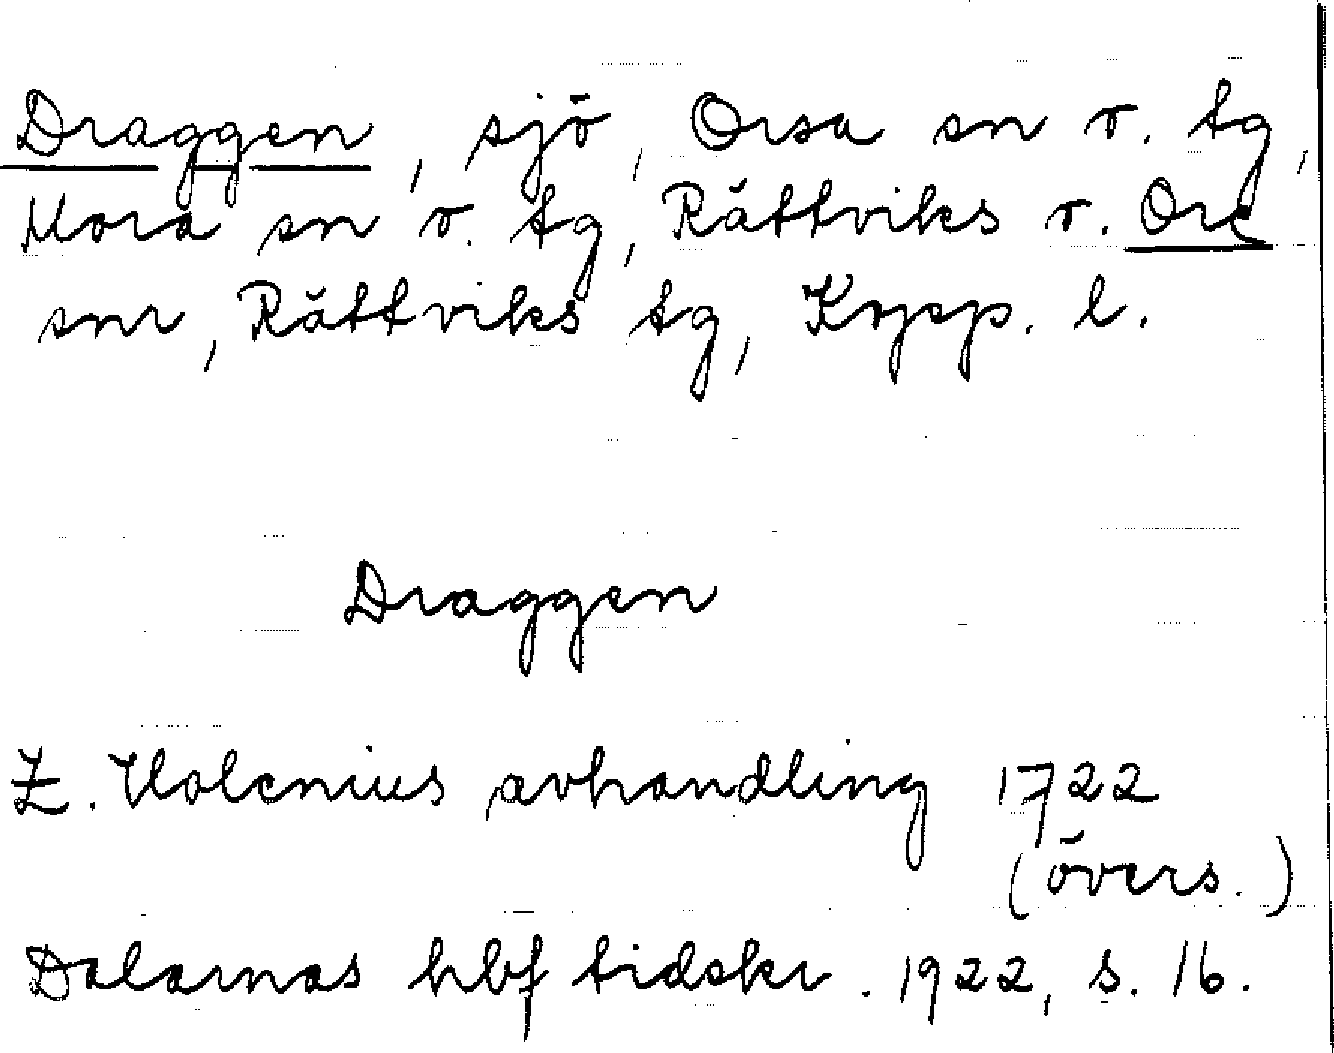 Draggen, sjö, Orsa sn o. tg,
Mora sn o. tg, Rättviks o. Ore
snr, Rättviks tg, Kopp. l.
Draggen
Z. Holenius avhandling 1722
(övers.)
Dalarnas hbf tidskr. 1922, s. 16.